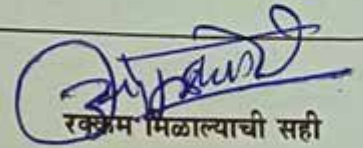 रक्कम मिळाल्याची सही